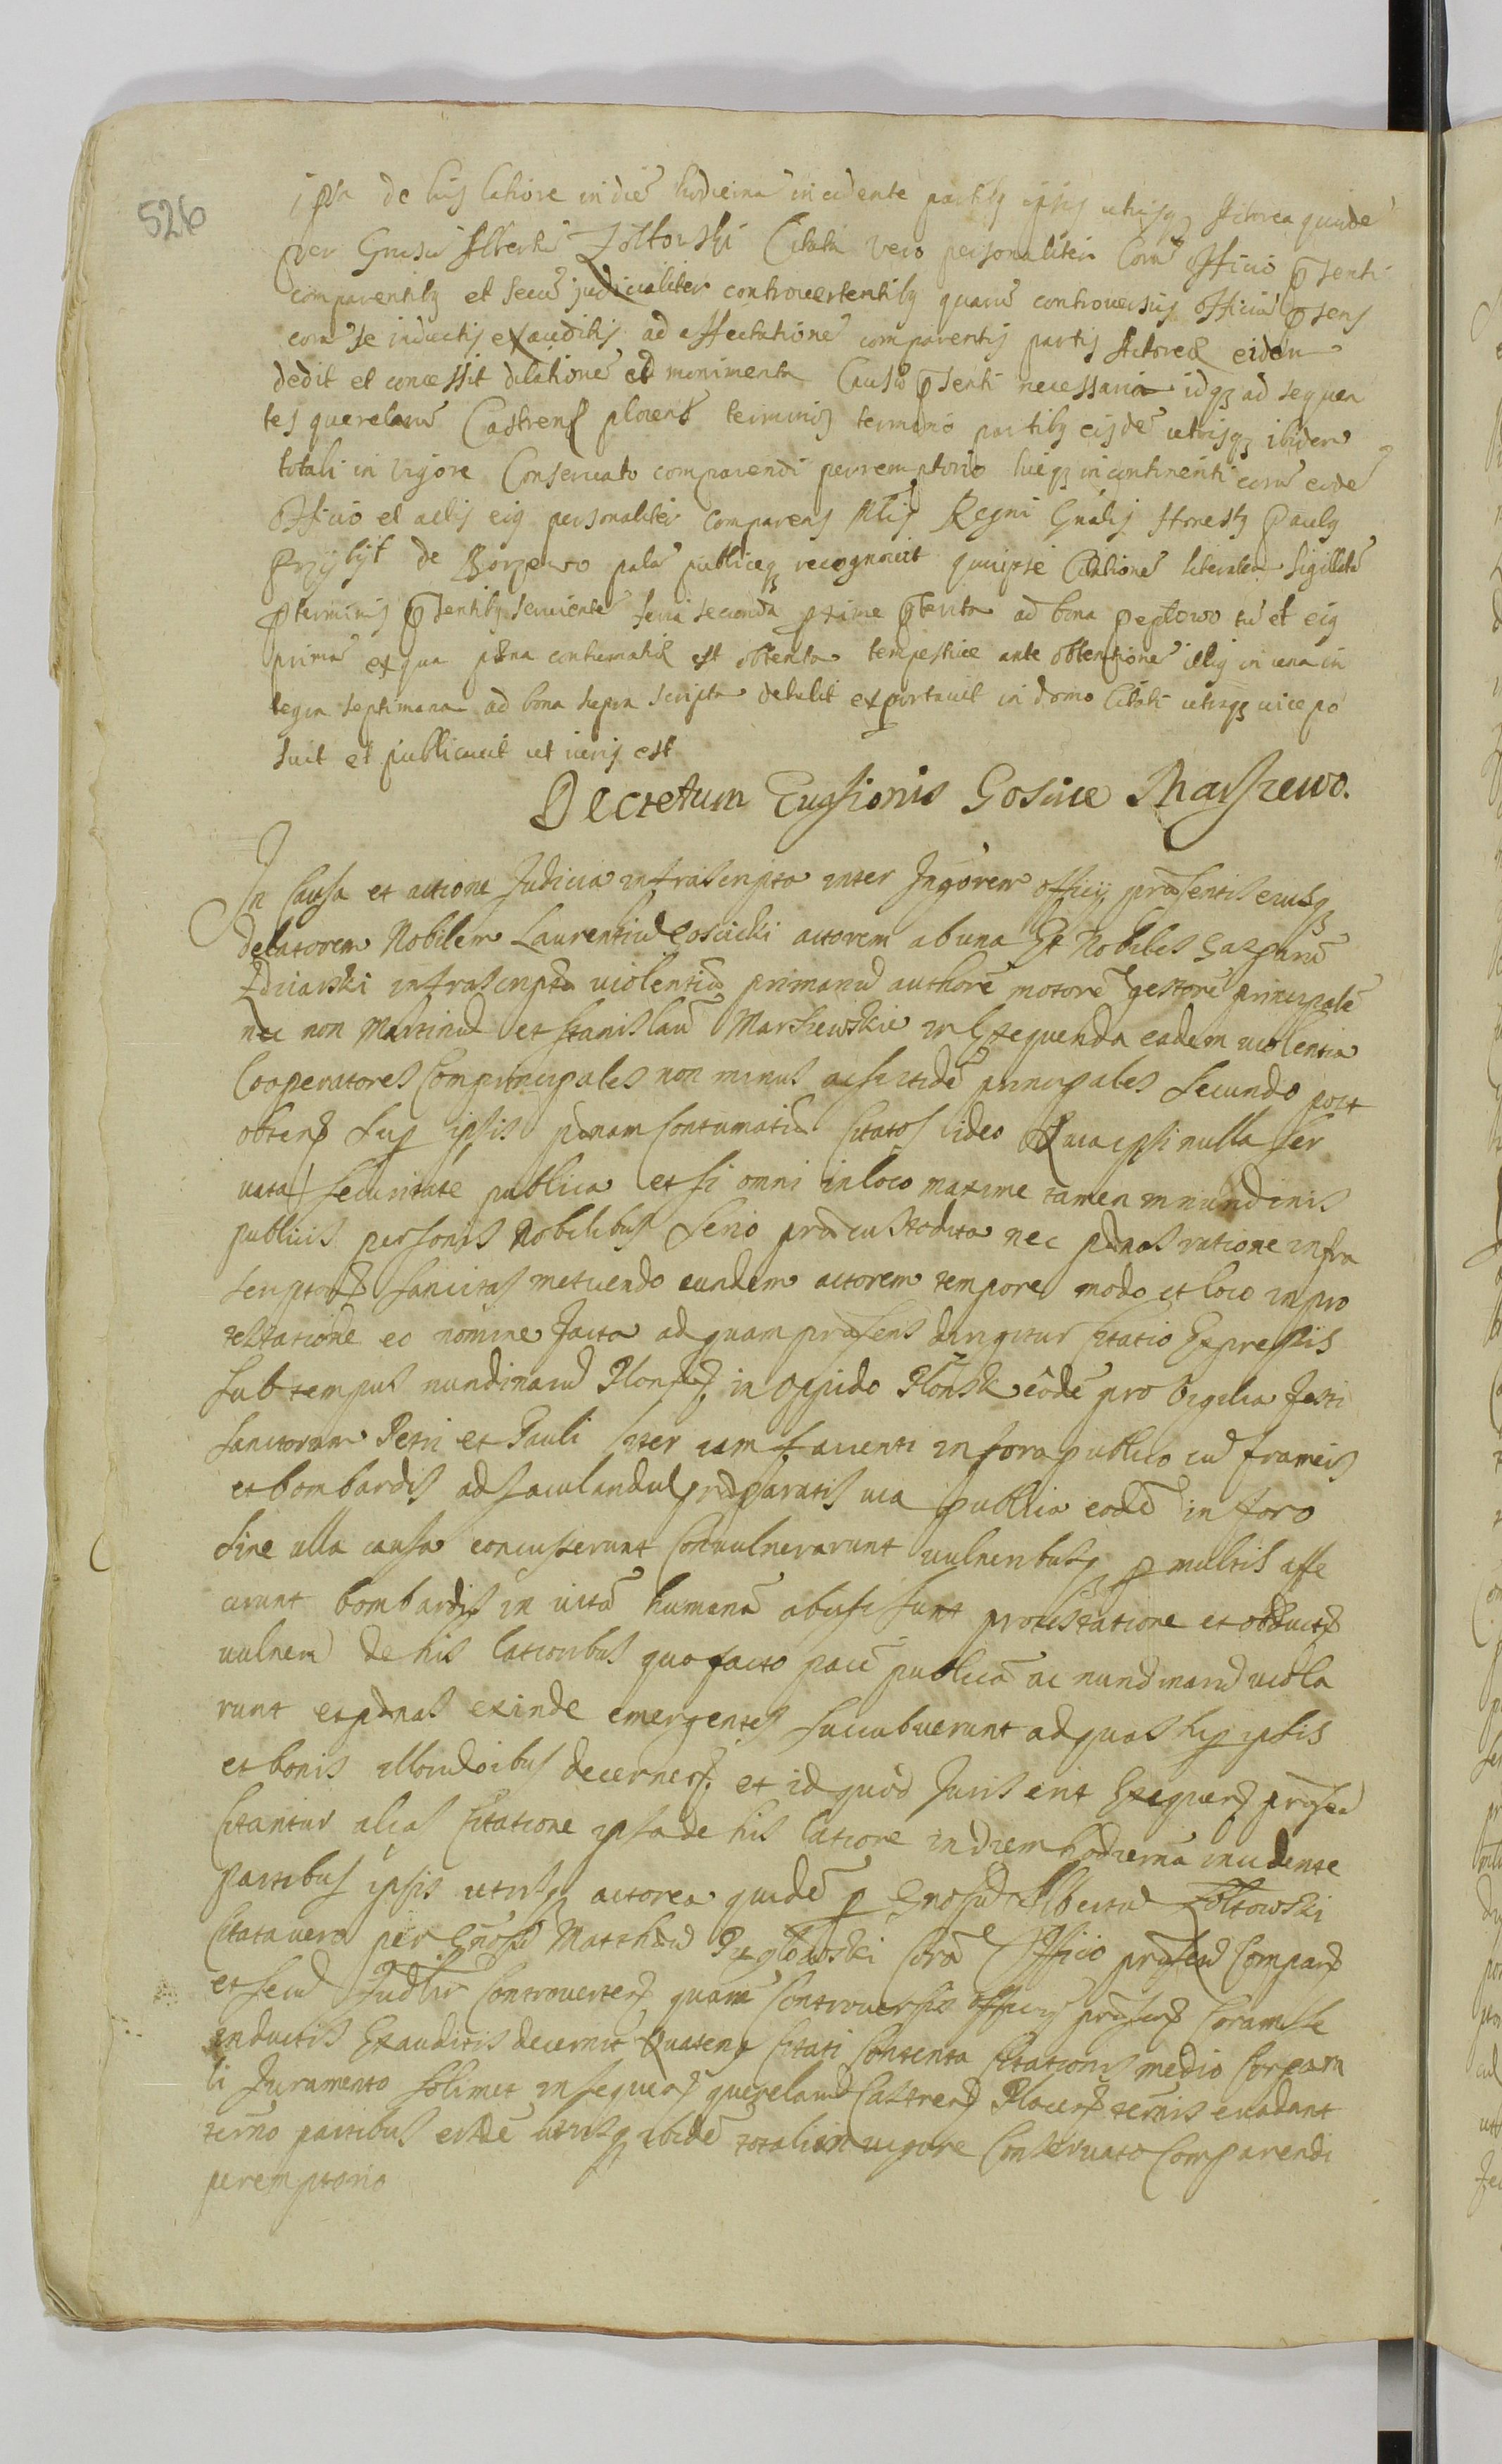 526
ipsa de his latiore in die hodierna incidente partibq ipsis utrisqz Actorea quide
per Gnosu Albertu Zołtowski Citata vero personaliter Cora officio psenti
comparentibq et secu judicialiter controvertentibq quaru controversiis officiu psens
cora se inductis exauditis ad affectatione comparentis partis Actoreæ eidem
dedit et concessit dilatione ad munimenta Causæ psenti necessaria idqz ad sequen
tes querelaru Castren plocen terminos termino partibq eisde utrisqz ibidem
totali in vigore Conservato comparendi perremptorio huicqz incontinenti cora eode
officio et actis eiq personaliter comparens Mlis Regni Gnalis Honestq Paulq
Przybyt de Borzewo pala publiceqz recognovit quia ipse Citatione literalem sigillata
p terminis psentibq serviente feria secunda pxime pterita ad bona Peptowo tu et eiq
prima ex qua pæna contumatiæ est obtenta tempestive ante obtentione illiq in una in
tegra septimana ad bona supra scripta detulit exportavit in domo Citati utraqz vice po
suit et publicavit ut iuris est
Decretum Evasionis Gosicie Marszewo.
In Causa et actione Judicia infrascripta inter Jngorem officij præsentis eiusqz
delatorem Nobilem Laurentiu Coscicki actorem ab una Et Nobiles Gasparu
Zdziarski infrascriptæ violentiæ primariu authore motore gestore principale
nec non Martinu et Stanislau Marszewskie in Exequenda eadem violentia
Cooperatores Comprincipales non minus ac si itide principales Secundo post
obten sup ipsis pænam Contumatiæ Citatos ideo Quia ipsi nulla ser
vata securitate publica et si omni in loco maxime tamen in nundinis
publicis personis Nobilibus Serio præcustodita nec pænas ratione infra
scriptor sancitas metuendo eundem actorem tempore modo et loco in pro
testatione eo nomine facta ad quam præsens dirigitur Citatio Expressis
sub tempus nundinaru Plonsen in oppido Plonsk eode pro Vigilia festi
Sanctorum Petri et Pauli iter cum facienti in foro publico cu frameis
et bombardis ad jaculandu præparatis via publica eode in foro
sine ulla causa concusserunt Convulnerarunt vulneribusqz p multis affe
cerunt bombardis in vita humana abusi sunt protestatione et obduct
vulneru de his latioribus quo facto pace publica ac nundinaru viola
runt et pænas exinde emergentes succubuerunt ad quas sup ipsis
et bonis illoru oibus decernen et id quod Juris erit Exequen præsen
Citantur alias Citatione ipsa de his latiore in diem hodierna incidente
partibus ipsis utrisqz actorea quide p Gnosu Albertu Zołtowski
Citata vero per Gnosu Matthæu Pęgłowski Cora Officio præsen Comparen
et secu Judlir Controverten quaru Controversiis officiu præsens Coram se
inductis Exauditis decernit Quatenq Citati Contenta Citationis medio Corpora
li Juramento solimet in sequen querelaru Castren Plocen termis evadant
termo partibus eisde utrisqz ibide totali in vigore Conservato Comparendi
peremptorio